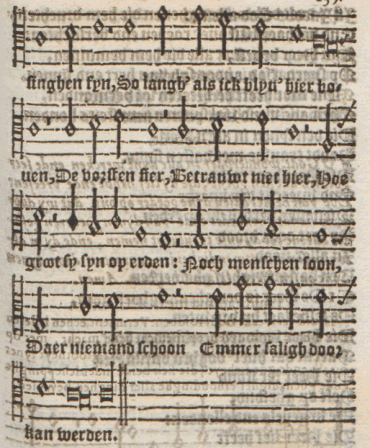 singhen syn, So langh' als ick blyu' hier bo-
uen, De vorsten fier, Betrauwt niet hier, Hoe
groot sy syn op erden: Noch menschen soon,
Daer niemand schoon Emmer saligh door
kan werden.